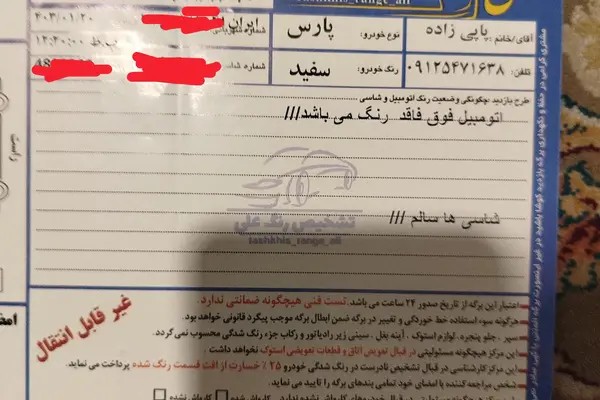 tashkhis_range_ali
آقای/خانم: پاپی زاده
نوع خودرو: پارس
شماره شهربانی: ایران
۴۰۳/۰۱/۲۰
تلفن: ۰۹۱۲۵۴۷۱۶۳۸
رنگ خودرو: سفید
شماره شاسی:
۱۲:۲۰:۰۰ ب.ظ
طرح بازدید :چگونگی وضعیت رنگ اتومبیل و شاسی :
اتومبیل فوق فاقد رنگ می باشد///
تشخیص رنگ علی
tashkhis_range_ali
شاسی ها سالم ///
غیر قابل انتقال
اعتبار این برگه از تاریخ صدور ۲۴ ساعت می باشد. تست فنی هیچگونه ضمانتی ندارد.
هرگونه سوء استفاده خط خوردگی و تغییر در برگه ضمن ابطال برگه موجب پیگرد قانونی خواهد بود.
سپر ، جلو پنجره ، لوازم استوک ، آینه بغل ، سینی زیر رادیاتور و رکاب جزء رنگ شدگی محسوب نمی گردد.
این مرکز هیچگونه مسئولیتی در قبال تعویض اتاق و قطعات تعویضی استوک نخواهد داشت .
این مرکز کارشناسی در قبال تشخیص نادرست در رنگ شدگی خودرو ۲۵ ٪ خسارت از افت قسمت رنگ شده پرداخت می نماید.
شخص مراجعه کننده با امضای خود تمامی بندهای برگه را تایید می نماید.